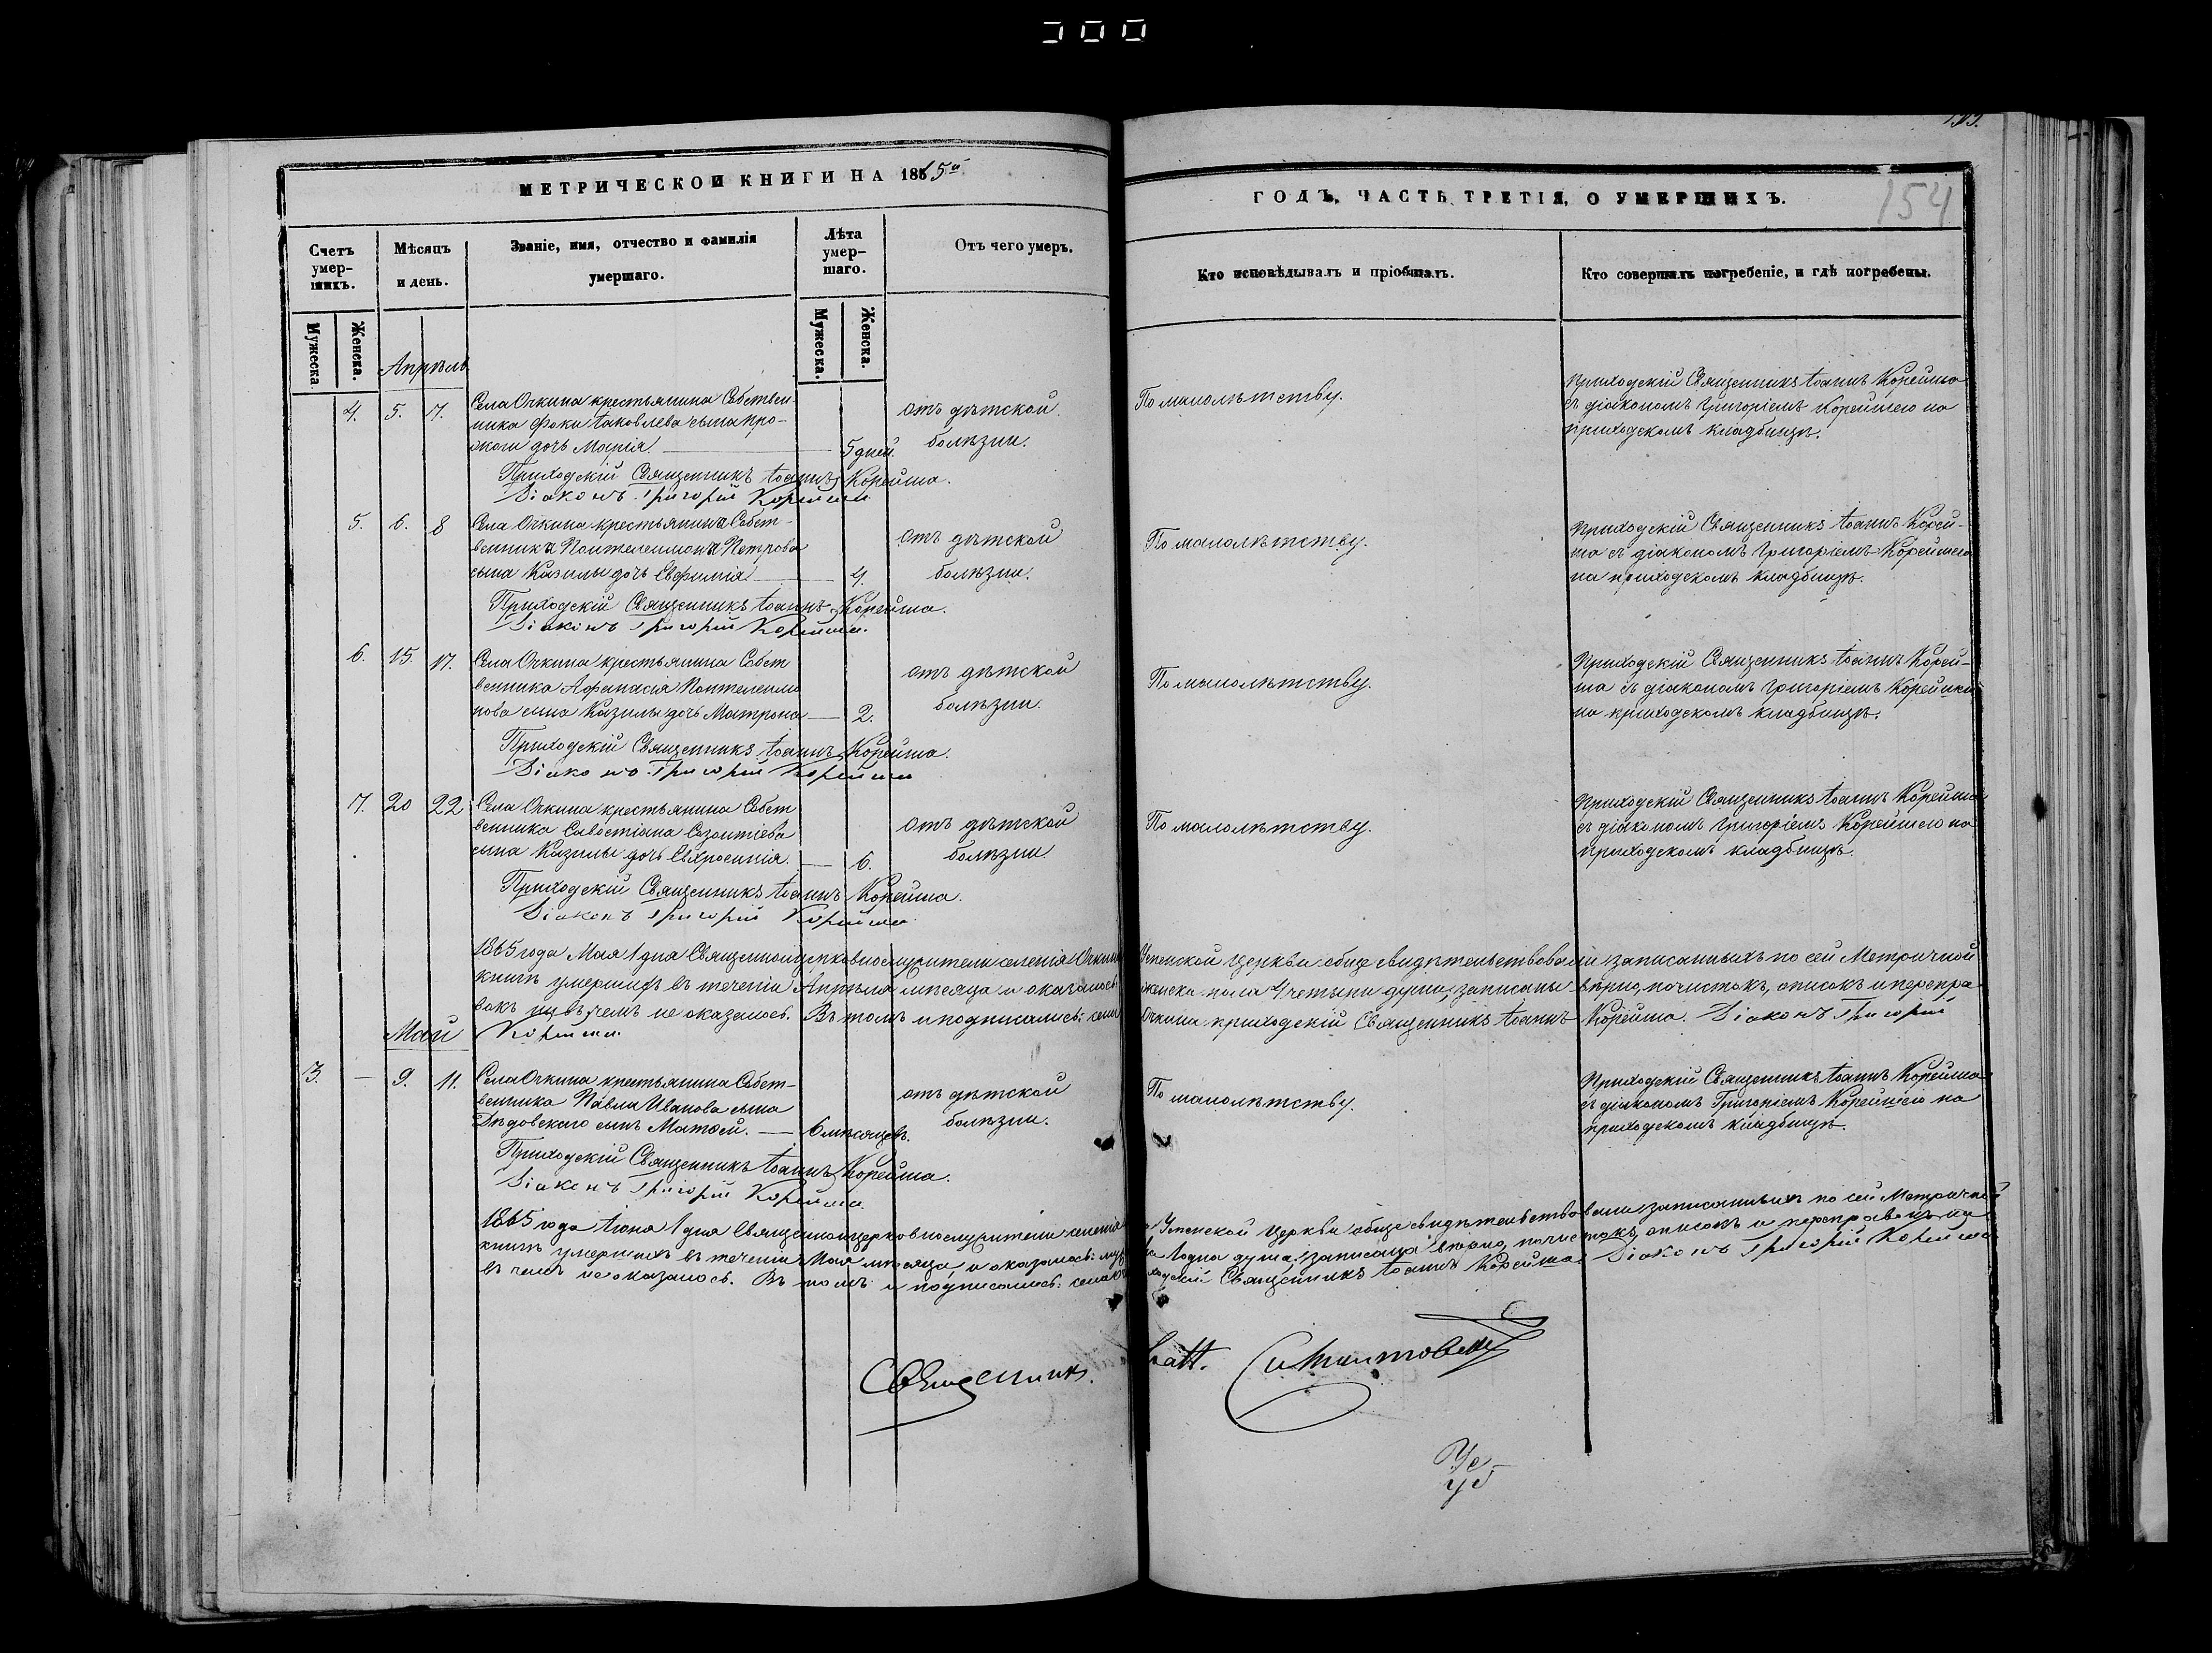 МЕТРИЧЕСКОЙ КНИГИ НА 1865й
Счетъ умер-шихъ.
Мѣсяцъ и день.
Званіе, имя, отчество и фамилія умершаго.
Лѣта умер-шаго.
Отъ чего умеръ.
Мужеска.
Женска.
Мужеска.
Женска.
Апрѣль
4. 5. 7. Села Очкина крестьянина Собствен
ника Фоки Іаковлева сына
дочь Марія. 5 дней.
отъ дѣтской
болѣзни.
Приходскій Священникъ Іоаннъ Корейша.
Діаконъ Григорій Корейша
5. 6. 8 Села Очкина крестьянина Собст-
венника Пантелеимона Петрова
сына Казилы дочь Евфимія 4.
отъ дѣтской
болѣзни.
Приходскій Священникъ Іоаннъ Корейша.
Діаконъ Григорій Корейша.
6. 15. 17. Села Очкина крестьянина Собст
венника Афанасія Пантелеимо
нова сына Казилы дочь Матрона 2.
отъ дѣтской
болѣзни.
Приходскій Священникъ Іоаннъ Корейша.
Діаконъ Григорій Корейша
7. 20 22 Села Очкина крестьянина Собст
венника Савостіана Созонтіева
сына Казилы дочь Евфросинія. 6.
отъ дѣтской
болѣзни.
Приходскій Священникъ Іоаннъ Корейша.
Діаконъ Григорій Корейша
1865 года Мая 1 дня Священноицерковнослужители селенія Очкина
книгѣ умершихъ въ теченіи Апрѣля мѣсяца и оказалось
вокъ ни въ чемъ не оказалось. Въ томъ и подписались: села
Корейша.
Май
3. – 9. 11. Села Очкина крестьянина Собст-
венника Павла Иванова сына
Дѣдовскаго сынъ Матѳей. 6 мѣсяцевъ.
отъ дѣтской
болѣзни.
Приходскій Священникъ Іоаннъ Корейша.
Діаконъ Григорій Корейша
1865 года Іюня 1 дня Священноицерковнослужители селенія
книгѣ умершихъ въ теченіи Мая мѣсяца, и оказалось: муж
въ чемъ не оказалось. Въ томъ и подписались: села
Священникъ
154
ГОДЪ, ЧАСТЬ ТРЕТІЯ, О УМЕРШИХЪ.
Кто исповѣдывалъ и пріобщалъ.
Кто совершалъ погребеніе, и гдѣ погребены.
По малолѣтству.
Приходскій Священникъ Іоаннъ Корейша
съ діакономъ Григоріемъ Корейшею на
приходскомъ кладбищѣ.
По малолѣтству.
Приходскій Священникъ Іоаннъ Корей-
ша съ діакономъ Григоріемъ Корейшею
на приходскомъ кладбищѣ.
По малолѣтству.
Приходскій Священникъ Іоаннъ Корей-
ша съ діакономъ Григоріемъ Корейшею
на приходскомъ кладбищѣ.
По малолѣтству.
Приходскій Священникъ Іоаннъ Корейша
съ діакономъ Григоріемъ Корейшею на
приходскомъ кладбищѣ.
Успенской Церкви обще свидѣтельствовали записанныхъ по сей Метричной
женска пола 4 четыри души, записаны вѣрно, почистокъ, описокъ и перепра
Очкина приходскій Священникъ Іоаннъ Корейша. Діаконъ Григорій
По малолѣтству.
Приходскій Священникъ Іоаннъ Корейша
съ діакономъ Григоріемъ Корейшею на
приходскомъ кладбищѣ.
Успенской Церкви обще свидѣтельствовали записанныхъ по сей Метричной
1 одна душа, записаны вѣрно, почистокъ, описокъ и переправокъ ни
Священникъ Іоаннъ Корейша. Діаконъ Григорій Корейша